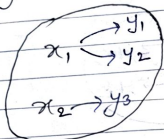 x₁ → y₁
→ y₂
x₂ → y₃